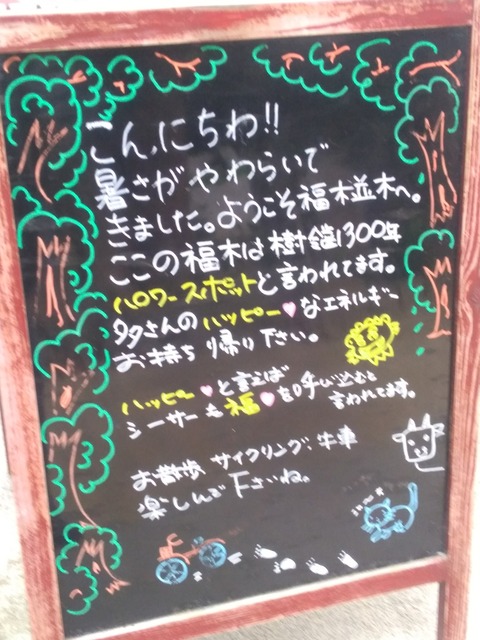 こんにちわ!!
暑さがやわらいで
きました。ようこそ福木並木へ。
ここの福木は樹鎮1300年
パワースポットと言われてます。
タタさんのハッピー♥なエネルギー
お持ち帰り下さい。
ハッピー♥と言えば
シーサーも福♥を呼び込むと
言われてます。
お散歩 サイクリング、牛車
楽しんで下さいね。